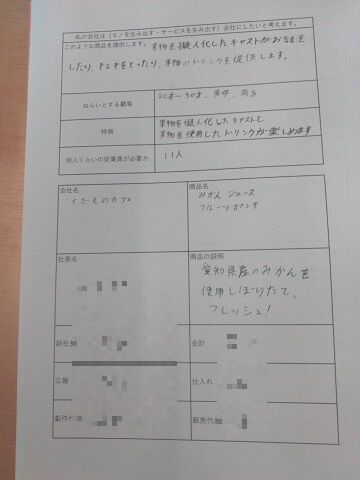 私の会社は（モノを生み出す・サービスを生み出す）会社にしたいと考えます。
このような商品を提供します。果物を擬人化したキャストがお話を
したり、チェキをとったり、果物のドリンクを提供します。
ねらいとする顧客
20才〜30才、男女、両方
特徴
果物を擬人化したキャストと
果物を使用したドリンクが楽しめます
何人くらいの従業員が必要か
11人
会社名
くだものカフェ
商品名
みかんジュース
フルーツポンチ
社長名
商品の説明
愛知県産のみかんを
使用しぼりたて、
フレッシュ!
副社長
会計
広報
仕入れ